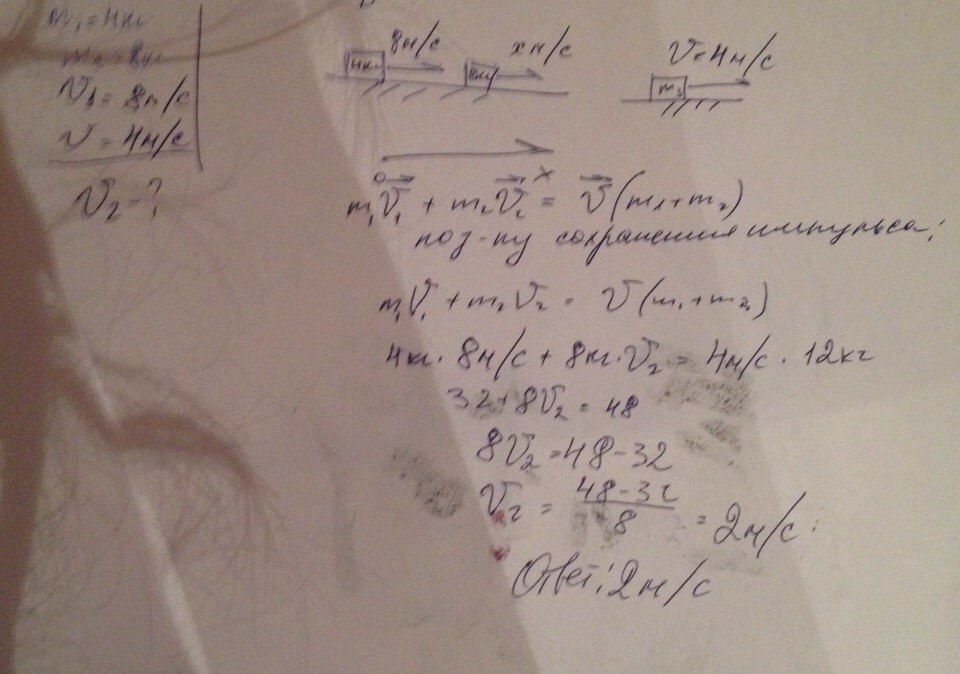 m₁=4кг
m₂=8кг
V₁=8м/с
V=4м/с
V₂-?
4кг 8м/с 8кг xм/с
V=4м/с
m₃
0 x
m₁V⃗₁ + m₂V⃗₂ = V⃗(m₁+m₂)
по з-ну сохранения импульса:
m₁V₁ + m₂V₂ = V(m₁+m₂)
4кг · 8м/с + 8кг · V₂ = 4м/с · 12кг
32+8V₂ = 48
8V₂=48-32
V₂ = (48-32)/8 = 2м/с.
Ответ: 2м/с